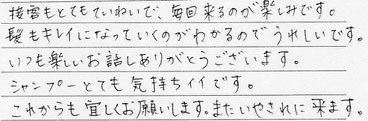 接客もとてもていねいで、毎回来るのが楽しみです。
髪もキレイになっていくのがわかるのでうれしいです。
いつも楽しいお話しありがとうございます。
シャンプーとても気持ちイイです。
これからも宜しくお願いします。またいやされに来ます。